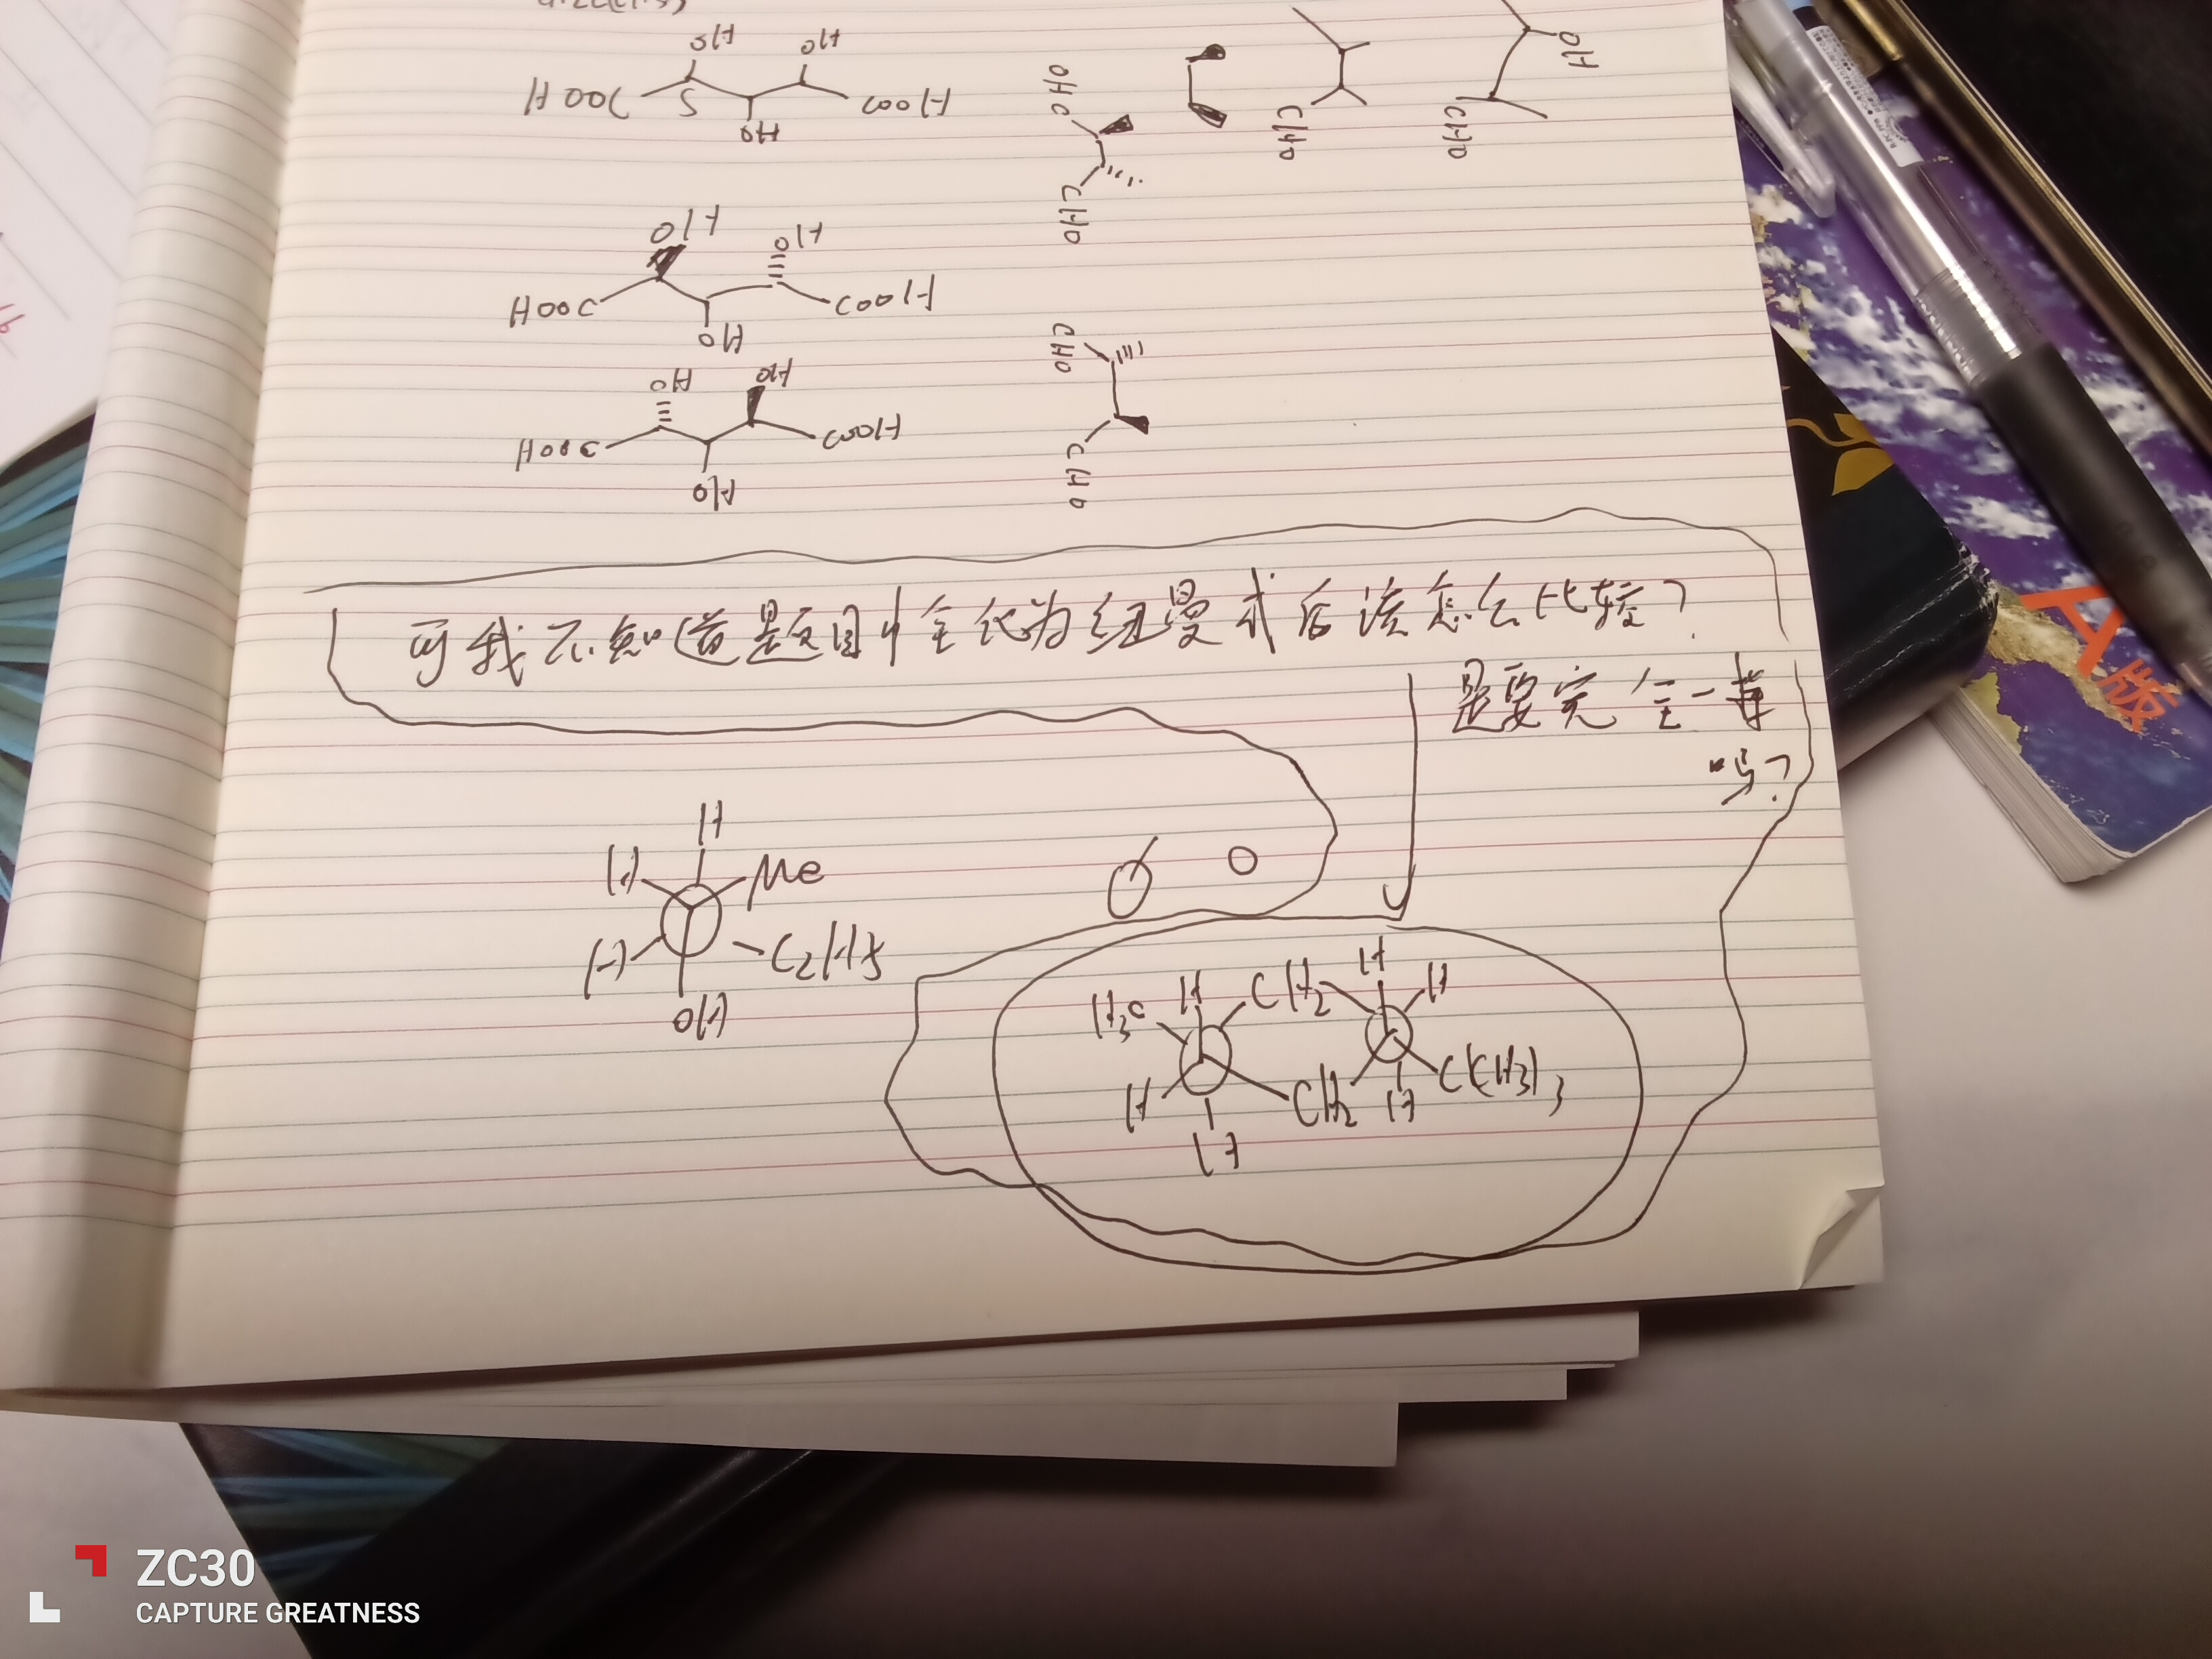 OH
OH
HOOC
S
COOH
OH
OHC
CHO
CHO
OH
CHO
OH
OH
HOOC
COOH
OH
CHO
CHO
OH
OH
HOOC
COOH
OH
可我不知道题目中全化为纽曼式后该怎么比较?
是要完全一样
吗?
H
H
Me
H
C2H5
OH
H3C
H
CH2
H
H
H
CH2
H
C(CH3)3
H
A版
ZC30
CAPTURE GREATNESS